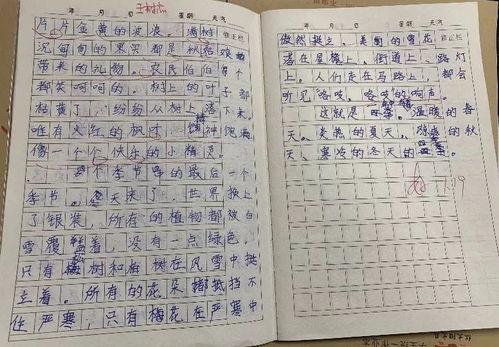 年 月 日 星期 天气
王树杰
片片金黄的波浪。满树
沉甸甸的果实都是秋姑娘给
带来的礼物。农民伯伯每个
都笑呵呵的。树上的叶子都
枯黄了，纷纷从树上落下来，
唯有火红的枫叶精神饱满，
像一个个快乐的小精灵。
冬季是的最后一个
季节。冬天来了，世界换上
了银装，所有的植物都被白
雪覆盖着，没有一点绿色，
只有松树和梅树在风雪中挺
立着。所有的花朵都抵挡不
住严寒，只有梅花在严寒中
年 月 日 星期 天气
傲然挺立。美丽的雪花
落在屋檐上、街道上、路灯
上。人们走在马路上，都会
听见“咯吱，咯吱”的响声。
这就是四季。温暖的春
天、炎热的夏天、凉爽的秋
天、寒冷的冬天的